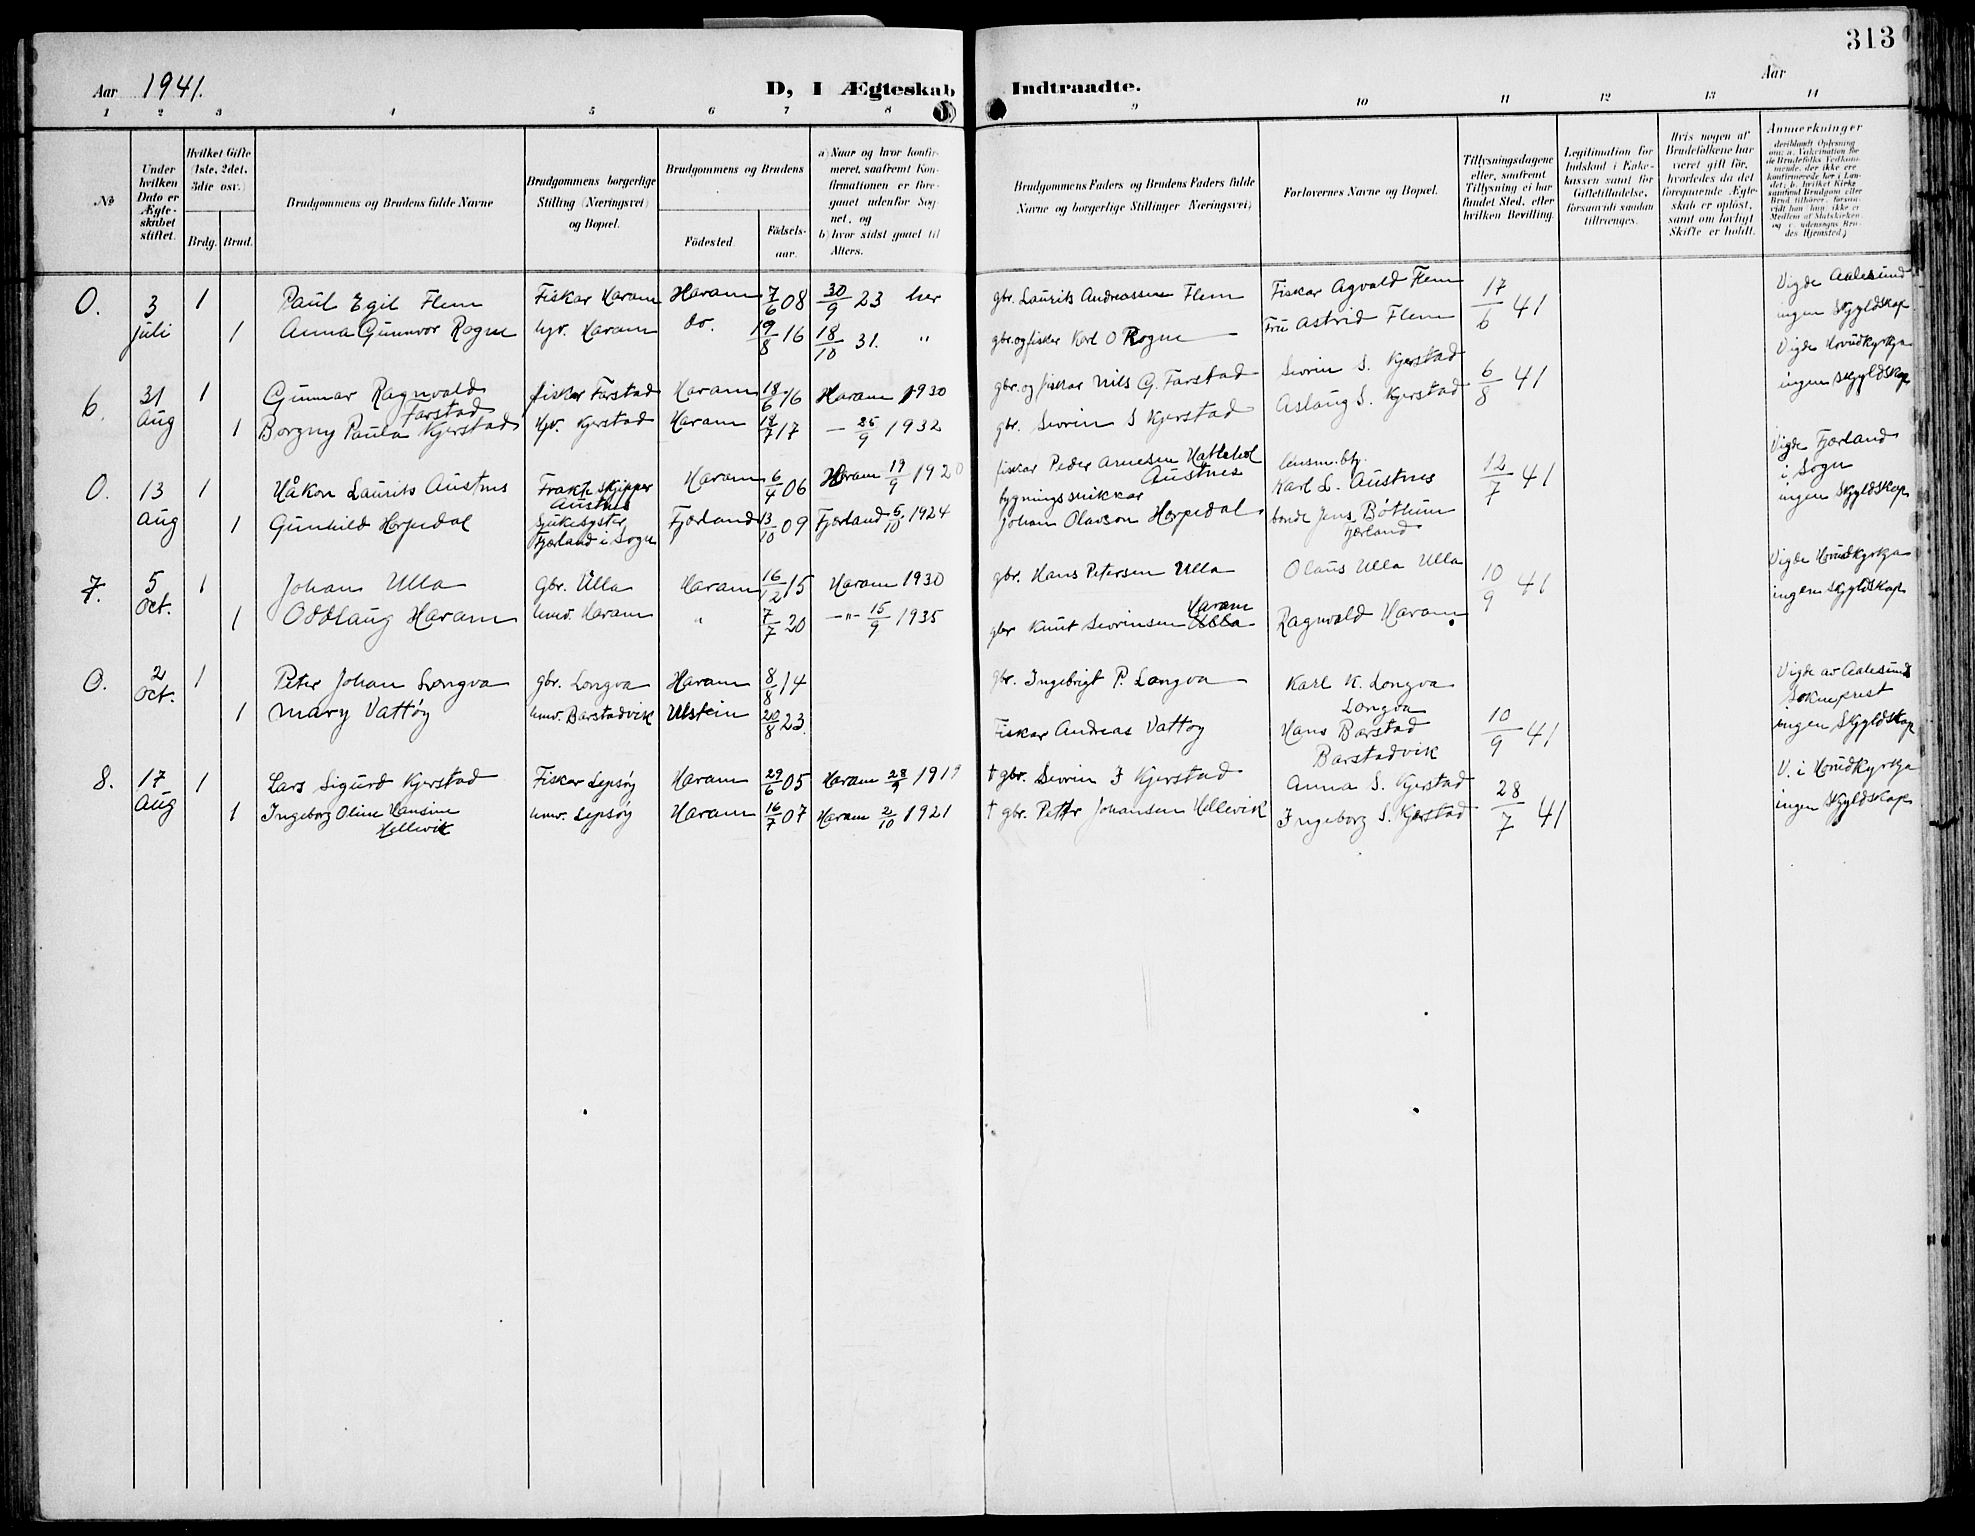 313
Aar 1941.
D, I Ægteskab Indtraadte.
Aar
1 2 3 4 5 6 7 8 9 10 11 12 13 14
No
Under hvilken Dato er Ægteskabet stiftet.
Hvilket Gifte (1ste, 2det, 3die osv.)
Brdg. Brud.
Brudgommens og Brudens fulde Navne
Brudgommens borgerlige Stilling (Næringsvei) og Bopæl.
Brudgommens og Brudens
Fødested.
Fødselsaar.
a) Naar og hvor konfirmeret, saafremt Konfirmationen er foregaaet udenfor Sognet, og
b) hvor sidst gaaet til Alters.
Brudgommens Faders og Brudens Faders fulde Navne og borgerlige Stillinger (Næringsvei)
Forlovernes Navne og Bopæl.
Tillysningsdagene eller, saafremt Tillysning ei har fundet Sted, efter hvilken Bevilling.
Legitimation for Indskud i Enkekassen samt for Giftetilladelse, forsaavidt saadan tiltrænges.
Hvis nogen af Brudefolkene har været gift før, hvorledes da det foregaaende Ægteskab er opløst, samt om lovligt Skifte er holdt.
Anmærkninger
0. 3 juli 1 Paul Egil Flem Fiskar Haram Haram 7/6 08 30/9 23 her gbr. Laurits Andreassen Flem Fiskar Agvald Flem 17/6 41 Vigde Aalesund ingen skyldskap
1 Anna Gunnvor Rogne hv. Haram do. 19/8 16 18/10 31. " gbr. og fiskar Karl O Rogne Fru Astrid Flem
6. 31 Aug 1 Gunnar Ragnvald Farstad fiskar Farstad Haram 18/6 16 Haram 1930 gbr. og fiskar Nils G. Farstad Sivrin S. Kjerstad 6/8 41 Vigde Hovudkyrkja ingen skyldskap
1 Borgny Paula Kjerstad hv. Kjerstad Haram 12/7 17 — 25/9 1932 gbr. Sivrin S Kjerstad Aslaug S. Kjerstad
0. 13 Aug 1 Håkon Laurits Austnes Frakteskipper Austnes Haram 6/4 06 Haram 19/9 1920 fiskar Peder Arnesen Hatlehol Austnes lensm.btj. Karl L. Austnes 12/7 41 Vigde Fjærland i Sogn ingen Skyldskap
1 Gunhild Horpedal Sjukesyster Fjærland i Sogn Fjærland 13/10 09 Fjærland 5/10 1924 bygningssnikkar Johan Olavson Horpedal bonde Jens Bøthun Fjærland
7. 5 Oct. 1 Johan Ulla Gbr. Ulla Haram 16/12 15 Haram 1930 gbr. Hans Petersen Ulla Olaus Ulla Ulla 10/9 41 Vigde Hovudkyrkja ingen skyldskap
1 Oddlaug Haram hmv. Haram " 7/7 20 —"— 15/9 1935 gbr Knut Sivrinsen Haram Ulla Ragnvald Haram
0. 2 Oct. 1 Peter Johan Longva gbr. Longva Haram 8/8 14 gbr. Ingebrigt P. Longva Karl K. Longva Longva Vigde av Aalesund Sokneprest ingen Skyldskap
1 Mary Vattøy hmv. Barstadvik Ulstein 20/8 23. Fiskar Andreas Vattøy Hans Barstad Barstadvik 10/9 41
8. 17 Aug 1 Lars Sigurd Kjerstad Fiskar Lepsøy Haram 29/6 05 Haram 28/9 1919 † gbr. Sivrin J Kjerstad Anna S. Kjerstad 28/7 41 V. i Hovudkyrkja ingen Skyldskap
1 Ingeborg Oline Hansine Hellevik hmv. Lepsøy Haram 16/7 07 Haram 2/10 1921 † gbr. Petter Johansen Hellevik Ingeborg S. Kjerstad